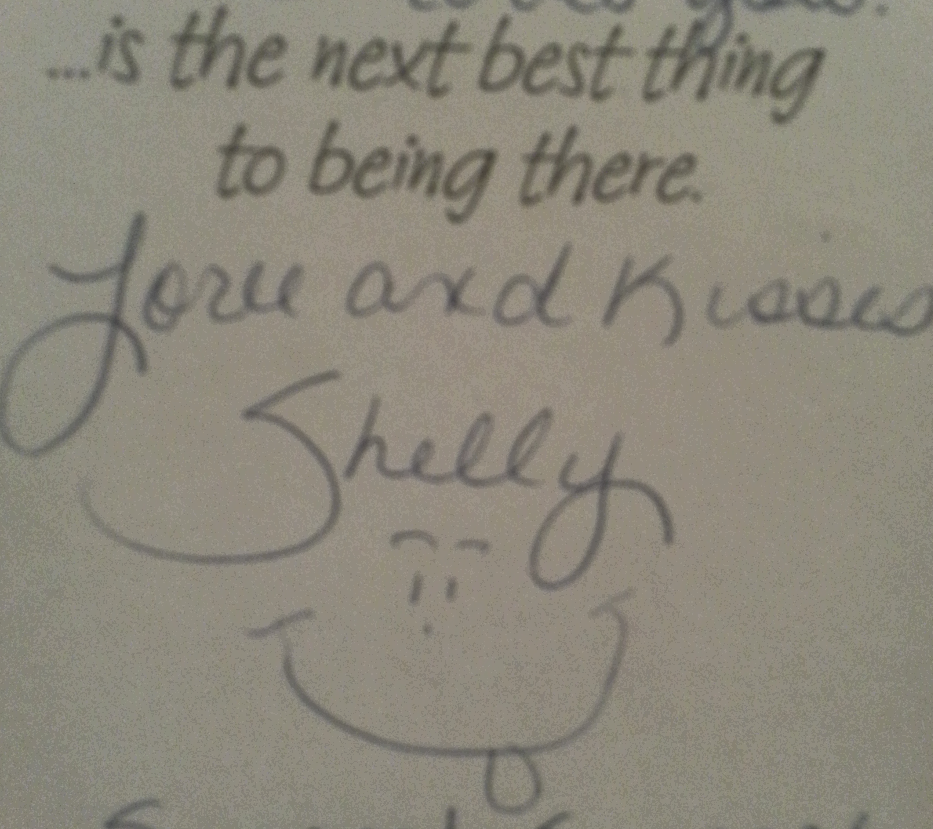 to see you.
...is the next best thing
to being there.
Love and Kisses
Shelly